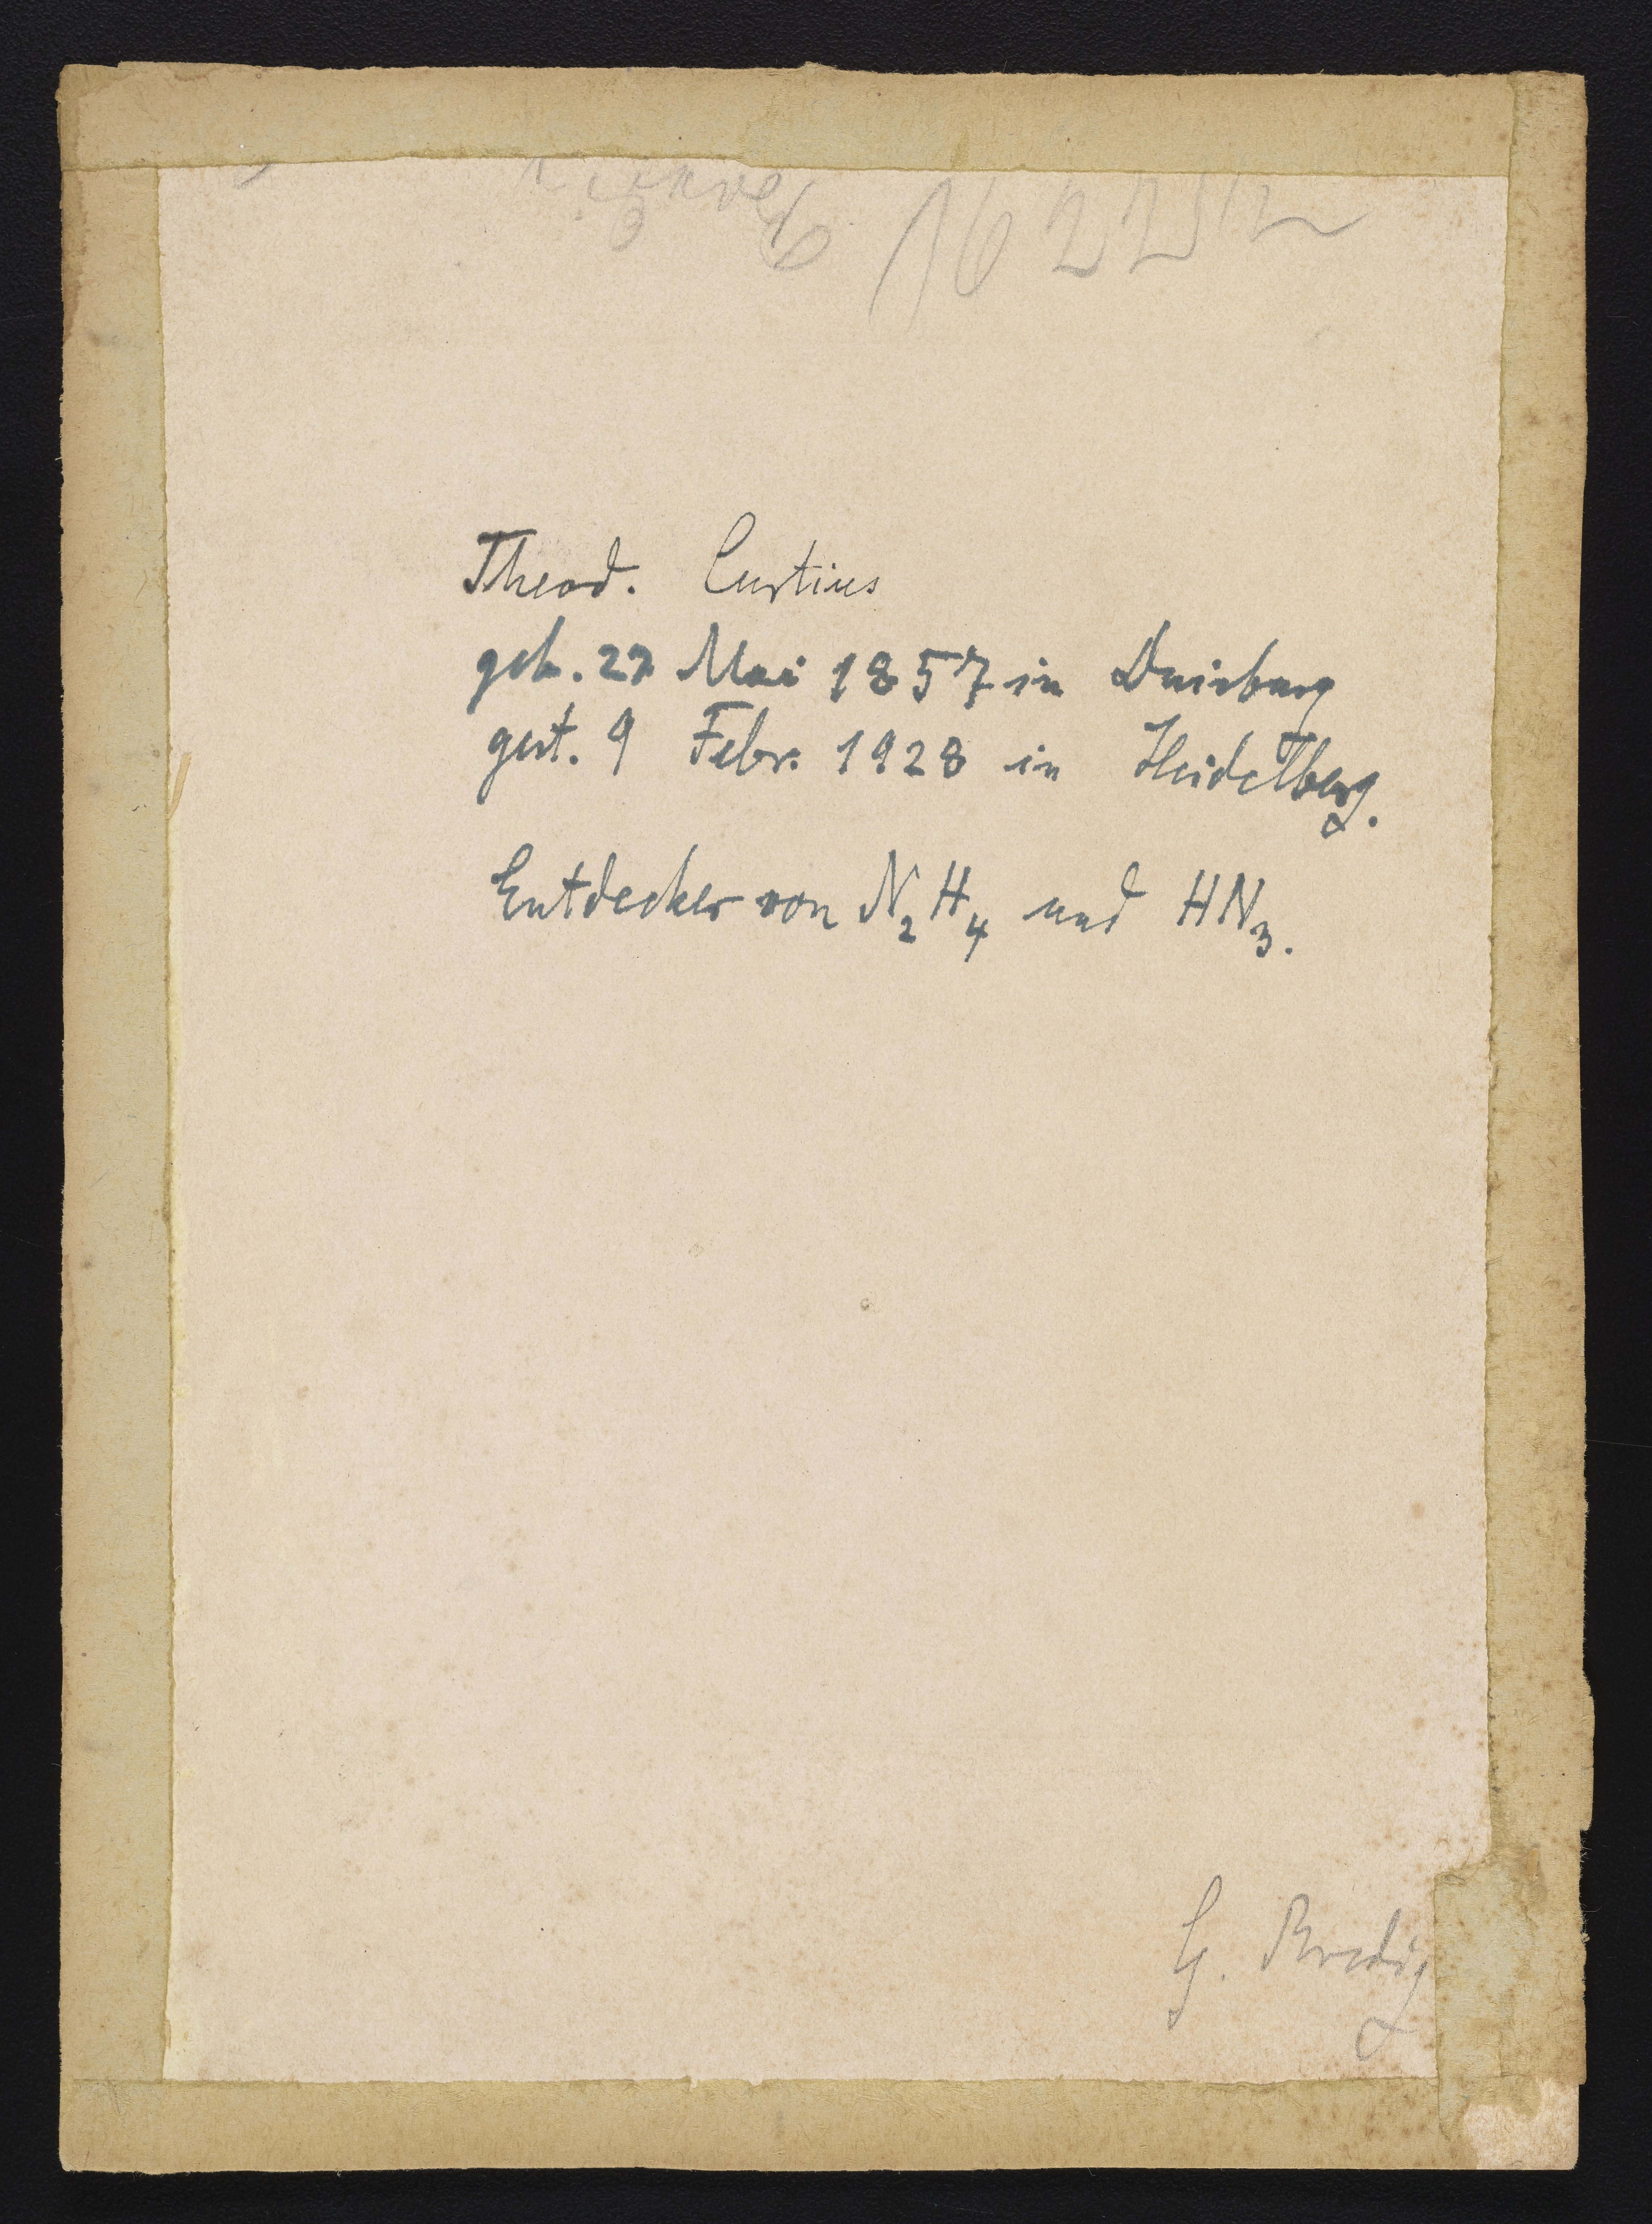 Theod. Curtius
geb. 27 Mai 1857 in Duisburg
gest. 9 Febr. 1928 in Heidelberg.
Entdecker von N₂H₄ und HN₃.
G. Bredig